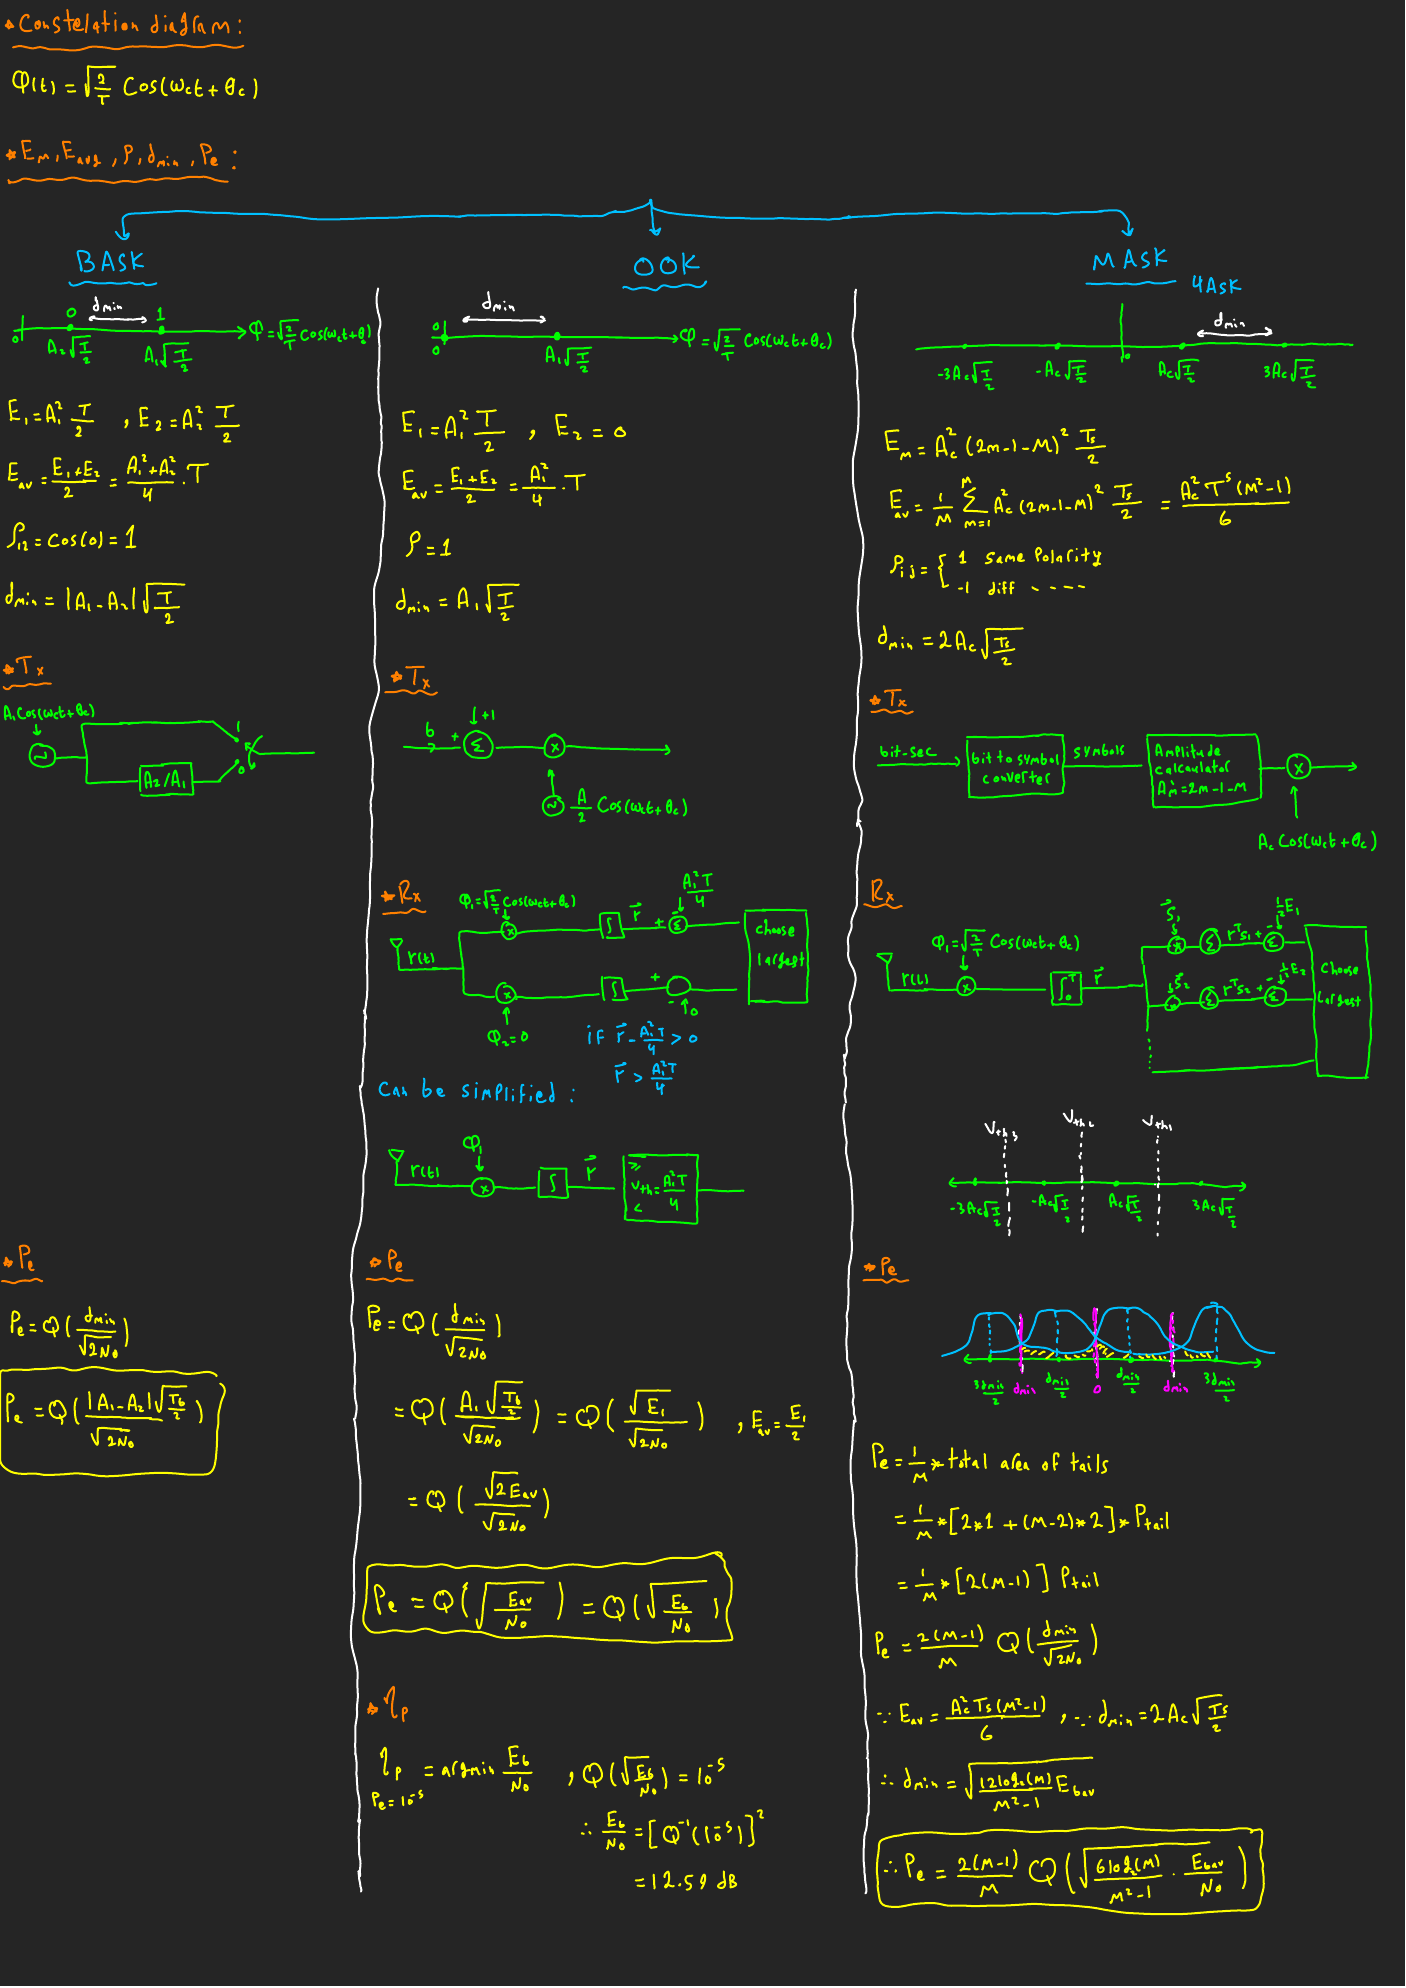 * Constelation diagram:
φ(t) = √(2/T) Cos(ωct + θc)
* Em, Eavg, ρ, dmin, Pe:
BASK
0 dmin 1
0 A2√(T/2) A1√(T/2) φ = √(2/T) Cos(ωct + θc)
E1 = A1² T/2 , E2 = A2² T/2
Eav = (E1 + E2)/2 = (A1² + A2²)/4 . T
ρ12 = cos(0) = 1
dmin = |A1 - A2| √(T/2)
* Tx
A1 Cos(ωct + θc)
~ 1
A2/A1 0
* Pe
Pe = Q(dmin/√(2N0))
Pe = Q(|A1 - A2| √(Tb/2) / √(2N0))
OOK
dmin
0
0 A1√(T/2) φ = √(2/T) Cos(ωct + θc)
E1 = A1² T/2 , E2 = 0
Eav = (E1 + E2)/2 = A1²/4 . T
ρ = 1
dmin = A1 √(T/2)
* Tx
+1
b + Σ x
~ A/2 Cos(ωct + θc)
* Rx
φ1 = √(2/T) Cos(ωct + θc) A1²T/4
r(t) x ∫ r⃗ + Σ - choose largest
x ∫ + - 0
φ2 = 0
if r⃗ - A1²T/4 > 0
r⃗ > A1²T/4
Can be simplified:
φ1
r(t) x ∫ r⃗ ≥ Vth = A1²T/4 <
* Pe
Pe = Q(dmin/√(2N0))
= Q(A1 √(Tb/2) / √(2N0)) = Q(√E1/√(2N0)) , Eav = E1/2
= Q(√(2Eav)/√(2N0))
Pe = Q(√(Eav/N0)) = Q(√(Eb/N0))
* ηp
ηp = argmin Eb/N0 , Q(√(Eb/N0)) = 10^-5
Pe = 10^-5
∴ Eb/N0 = [Q^-1(10^-5)]²
= 12.59 dB
MASK
4ASK
dmin
-3Ac√(T/2) -Ac√(T/2) 0 Ac√(T/2) 3Ac√(T/2)
Em = Ac² (2m-1-M)² Ts/2
Eav = 1/M Σ(m=1 to M) Ac² (2m-1-M)² Ts/2 = Ac² Ts (M²-1)/6
ρij = { 1 same Polarity
-1 diff ----
dmin = 2Ac √(Ts/2)
* Tx
bit-sec bit to symbol converter symbols Amplitude calculator Am = 2m-1-M x
Ac Cos(ωct + θc)
Rx
φ1 = √(2/T) Cos(ωct + θc) S⃗1 ½E1
r(t) x ∫0^T r⃗ x Σ r^T s1 + - Σ choose largest
S⃗2 x Σ r^T s2 + - Σ ½E2
Vth3 Vth2 Vth1
-3Ac√(T/2) -Ac√(T/2) Ac√(T/2) 3Ac√(T/2)
* Pe
3dmin/2 dmin dmin/2 0 dmin/2 dmin 3dmin/2
Pe = 1/M * total area of tails
= 1/M * [2*1 + (M-2)*2] * Ptail
= 1/M * [2(M-1)] Ptail
Pe = 2(M-1)/M Q(dmin/√(2N0))
∵ Eav = Ac² Ts (M²-1)/6 , ∵ dmin = 2Ac √(Ts/2)
∴ dmin = √(12 log2(M)/(M²-1) Ebav)
∴ Pe = 2(M-1)/M Q(√(6 log2(M)/(M²-1) . Ebav/N0))